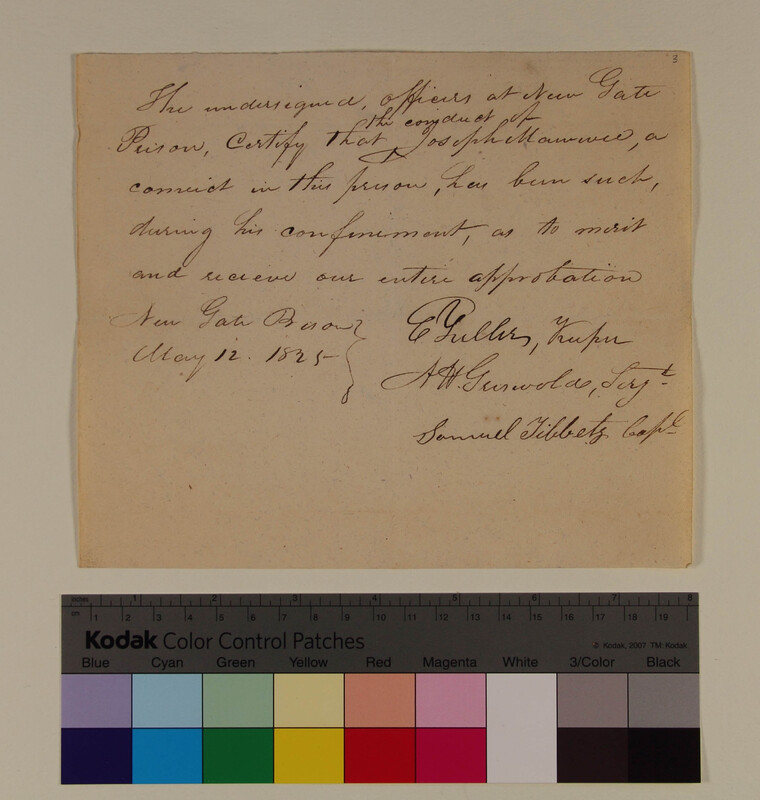 3
The undersigned, officers at New Gate
the conduct of
Prison, Certify that Joseph Mauwee, a
convict in this prison, has been such,
during his confinement, as to merit
and recieve our entire approbation
New Gate Prison
May 12. 1825
E Tuller, Keeper
A H. Griswold, Serjt
Samuel Tibbets Capl
inches 1 2 3 4 5 6 7 8
cm 1 2 3 4 5 6 7 8 9 10 11 12 13 14 15 16 17 18 19
Kodak Color Control Patches
© Kodak, 2007 TM: Kodak
Blue Cyan Green Yellow Red Magenta White 3/Color Black